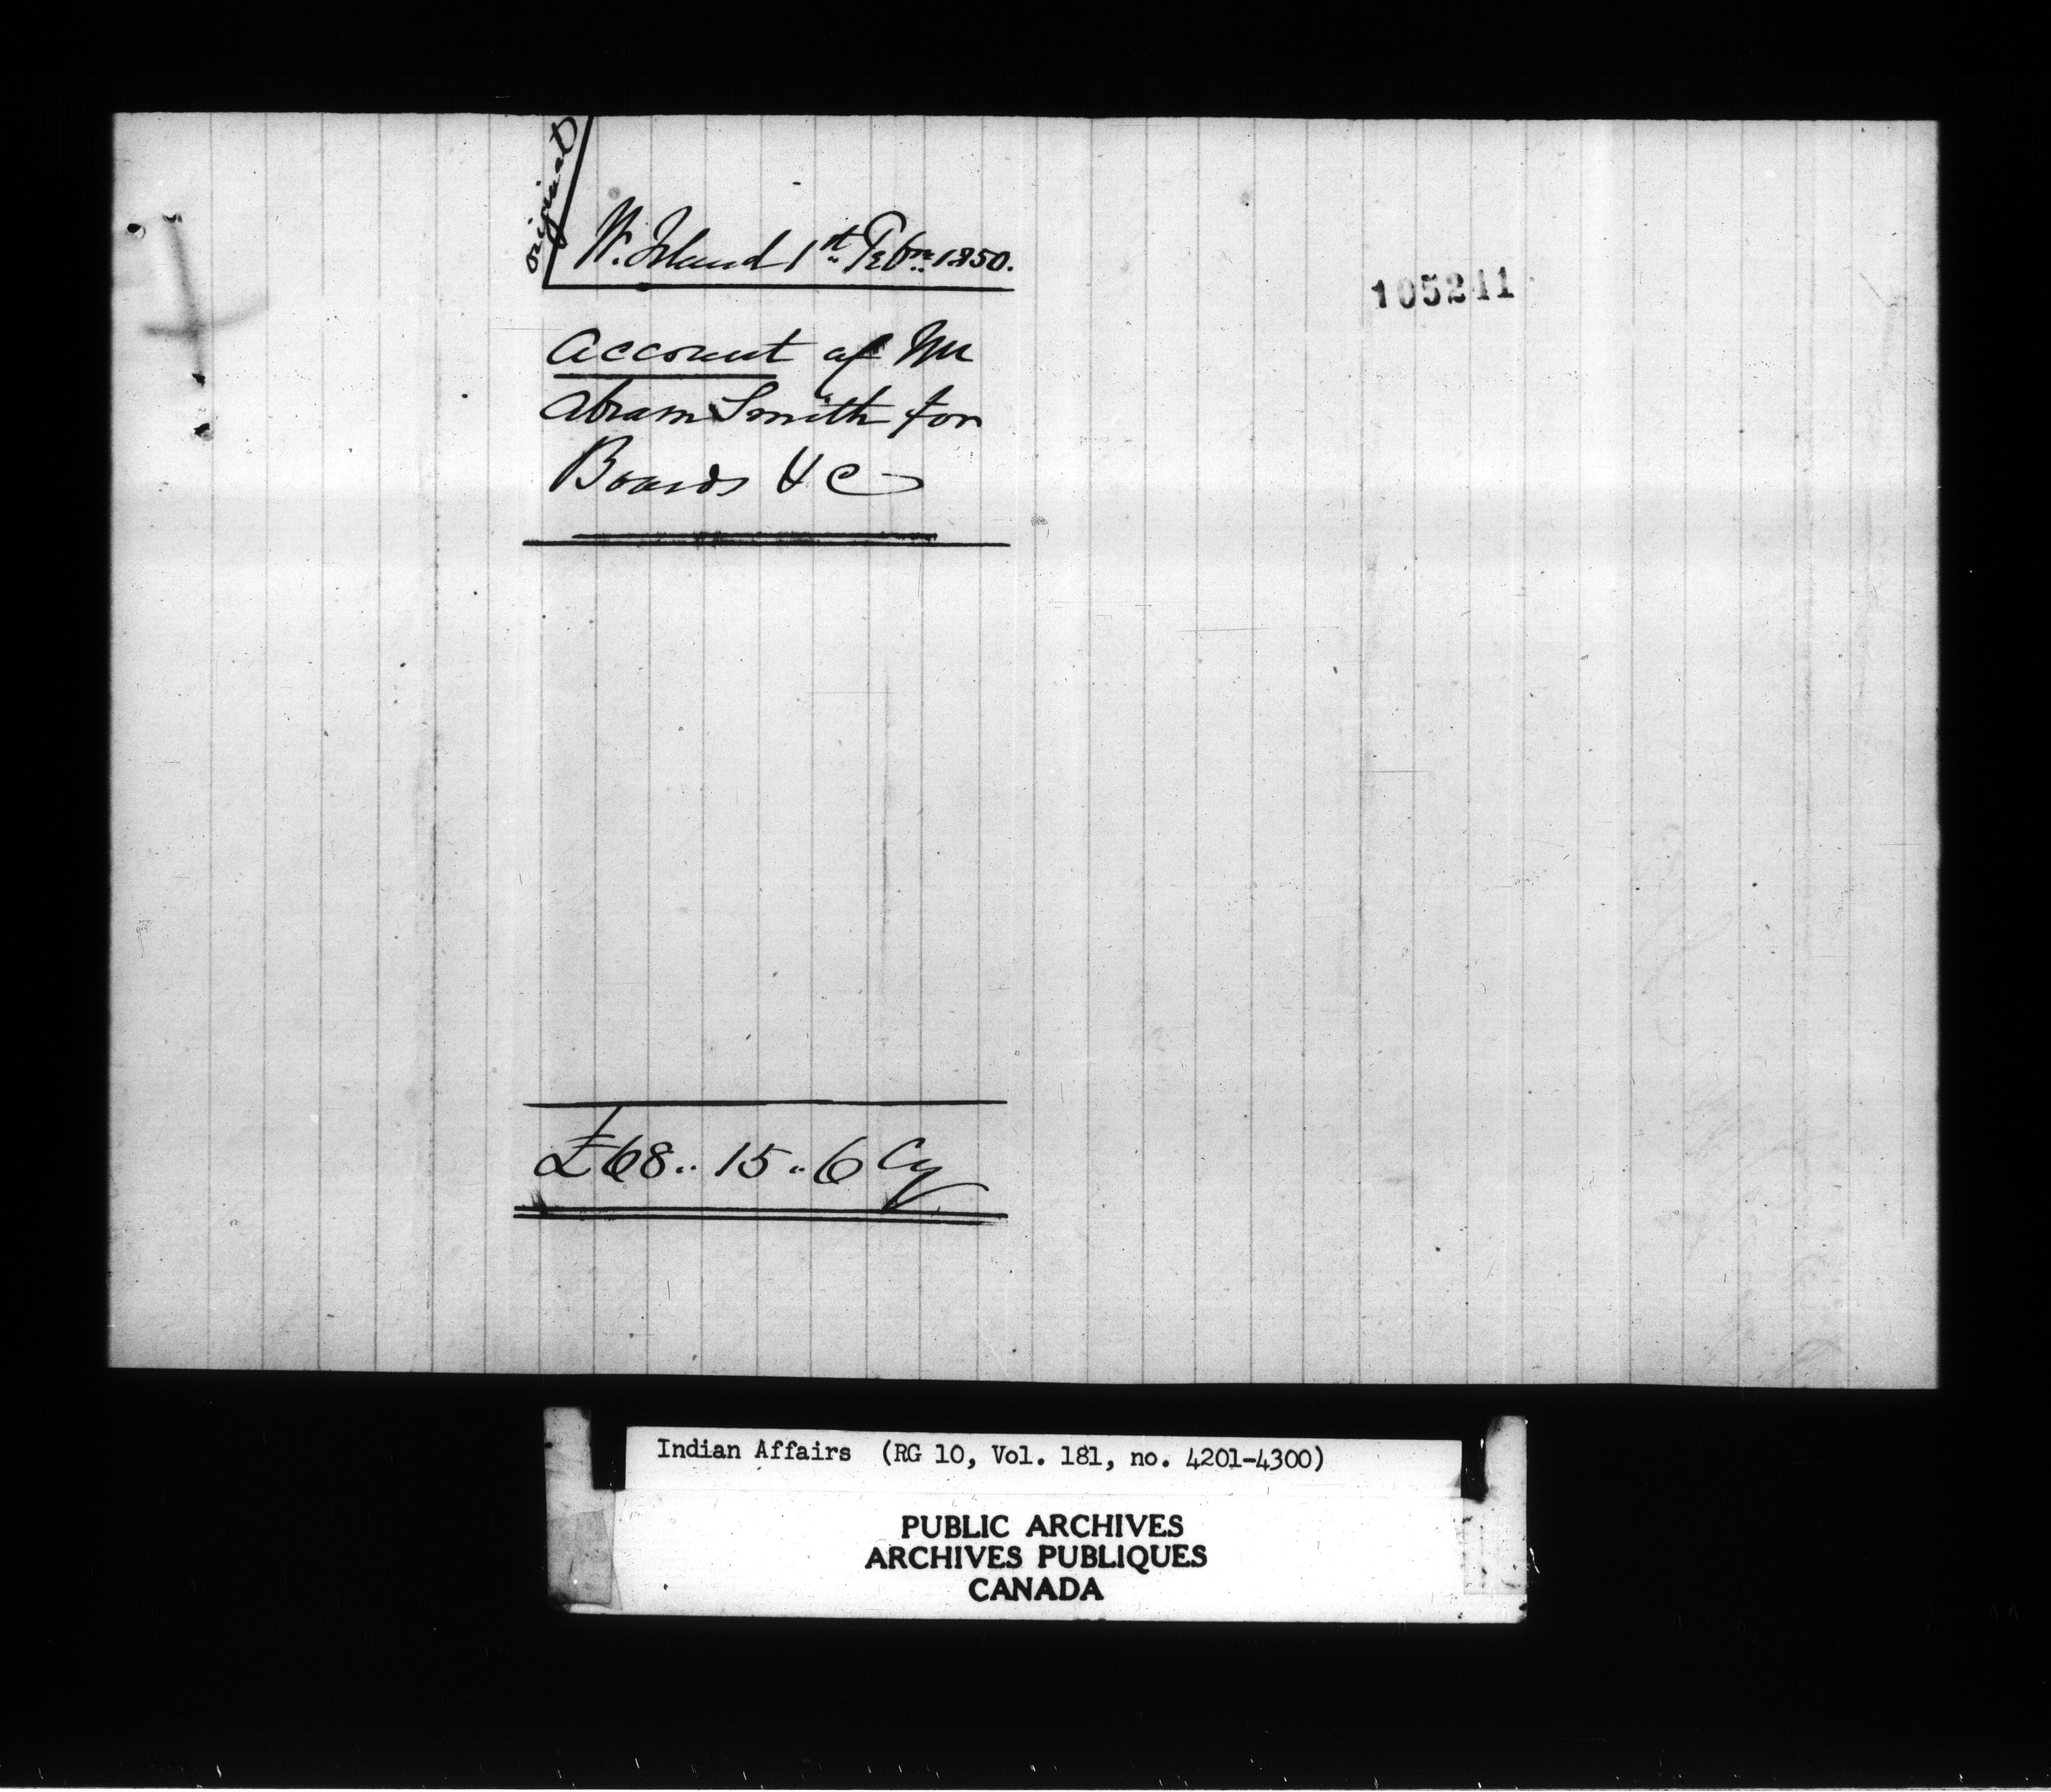 original
W. Island 1st Febry 1850.
105241
Account of Mr
Abram Smith for
Boards &C
£68.. 15.. 6 Cy
Indian Affairs (RG 10, Vol. 181, no. 4201-4300)
PUBLIC ARCHIVES
ARCHIVES PUBLIQUES
CANADA